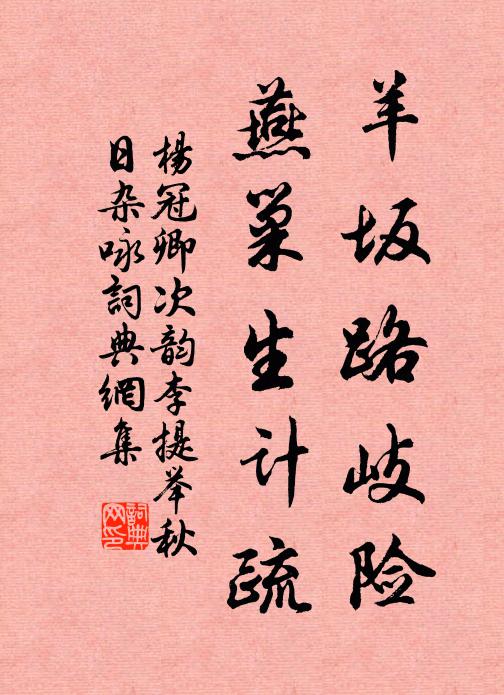 羊坂路歧险
燕巢生计疏
杨冠卿次韵李提举秋
日杂咏詞典網集
詞典网印